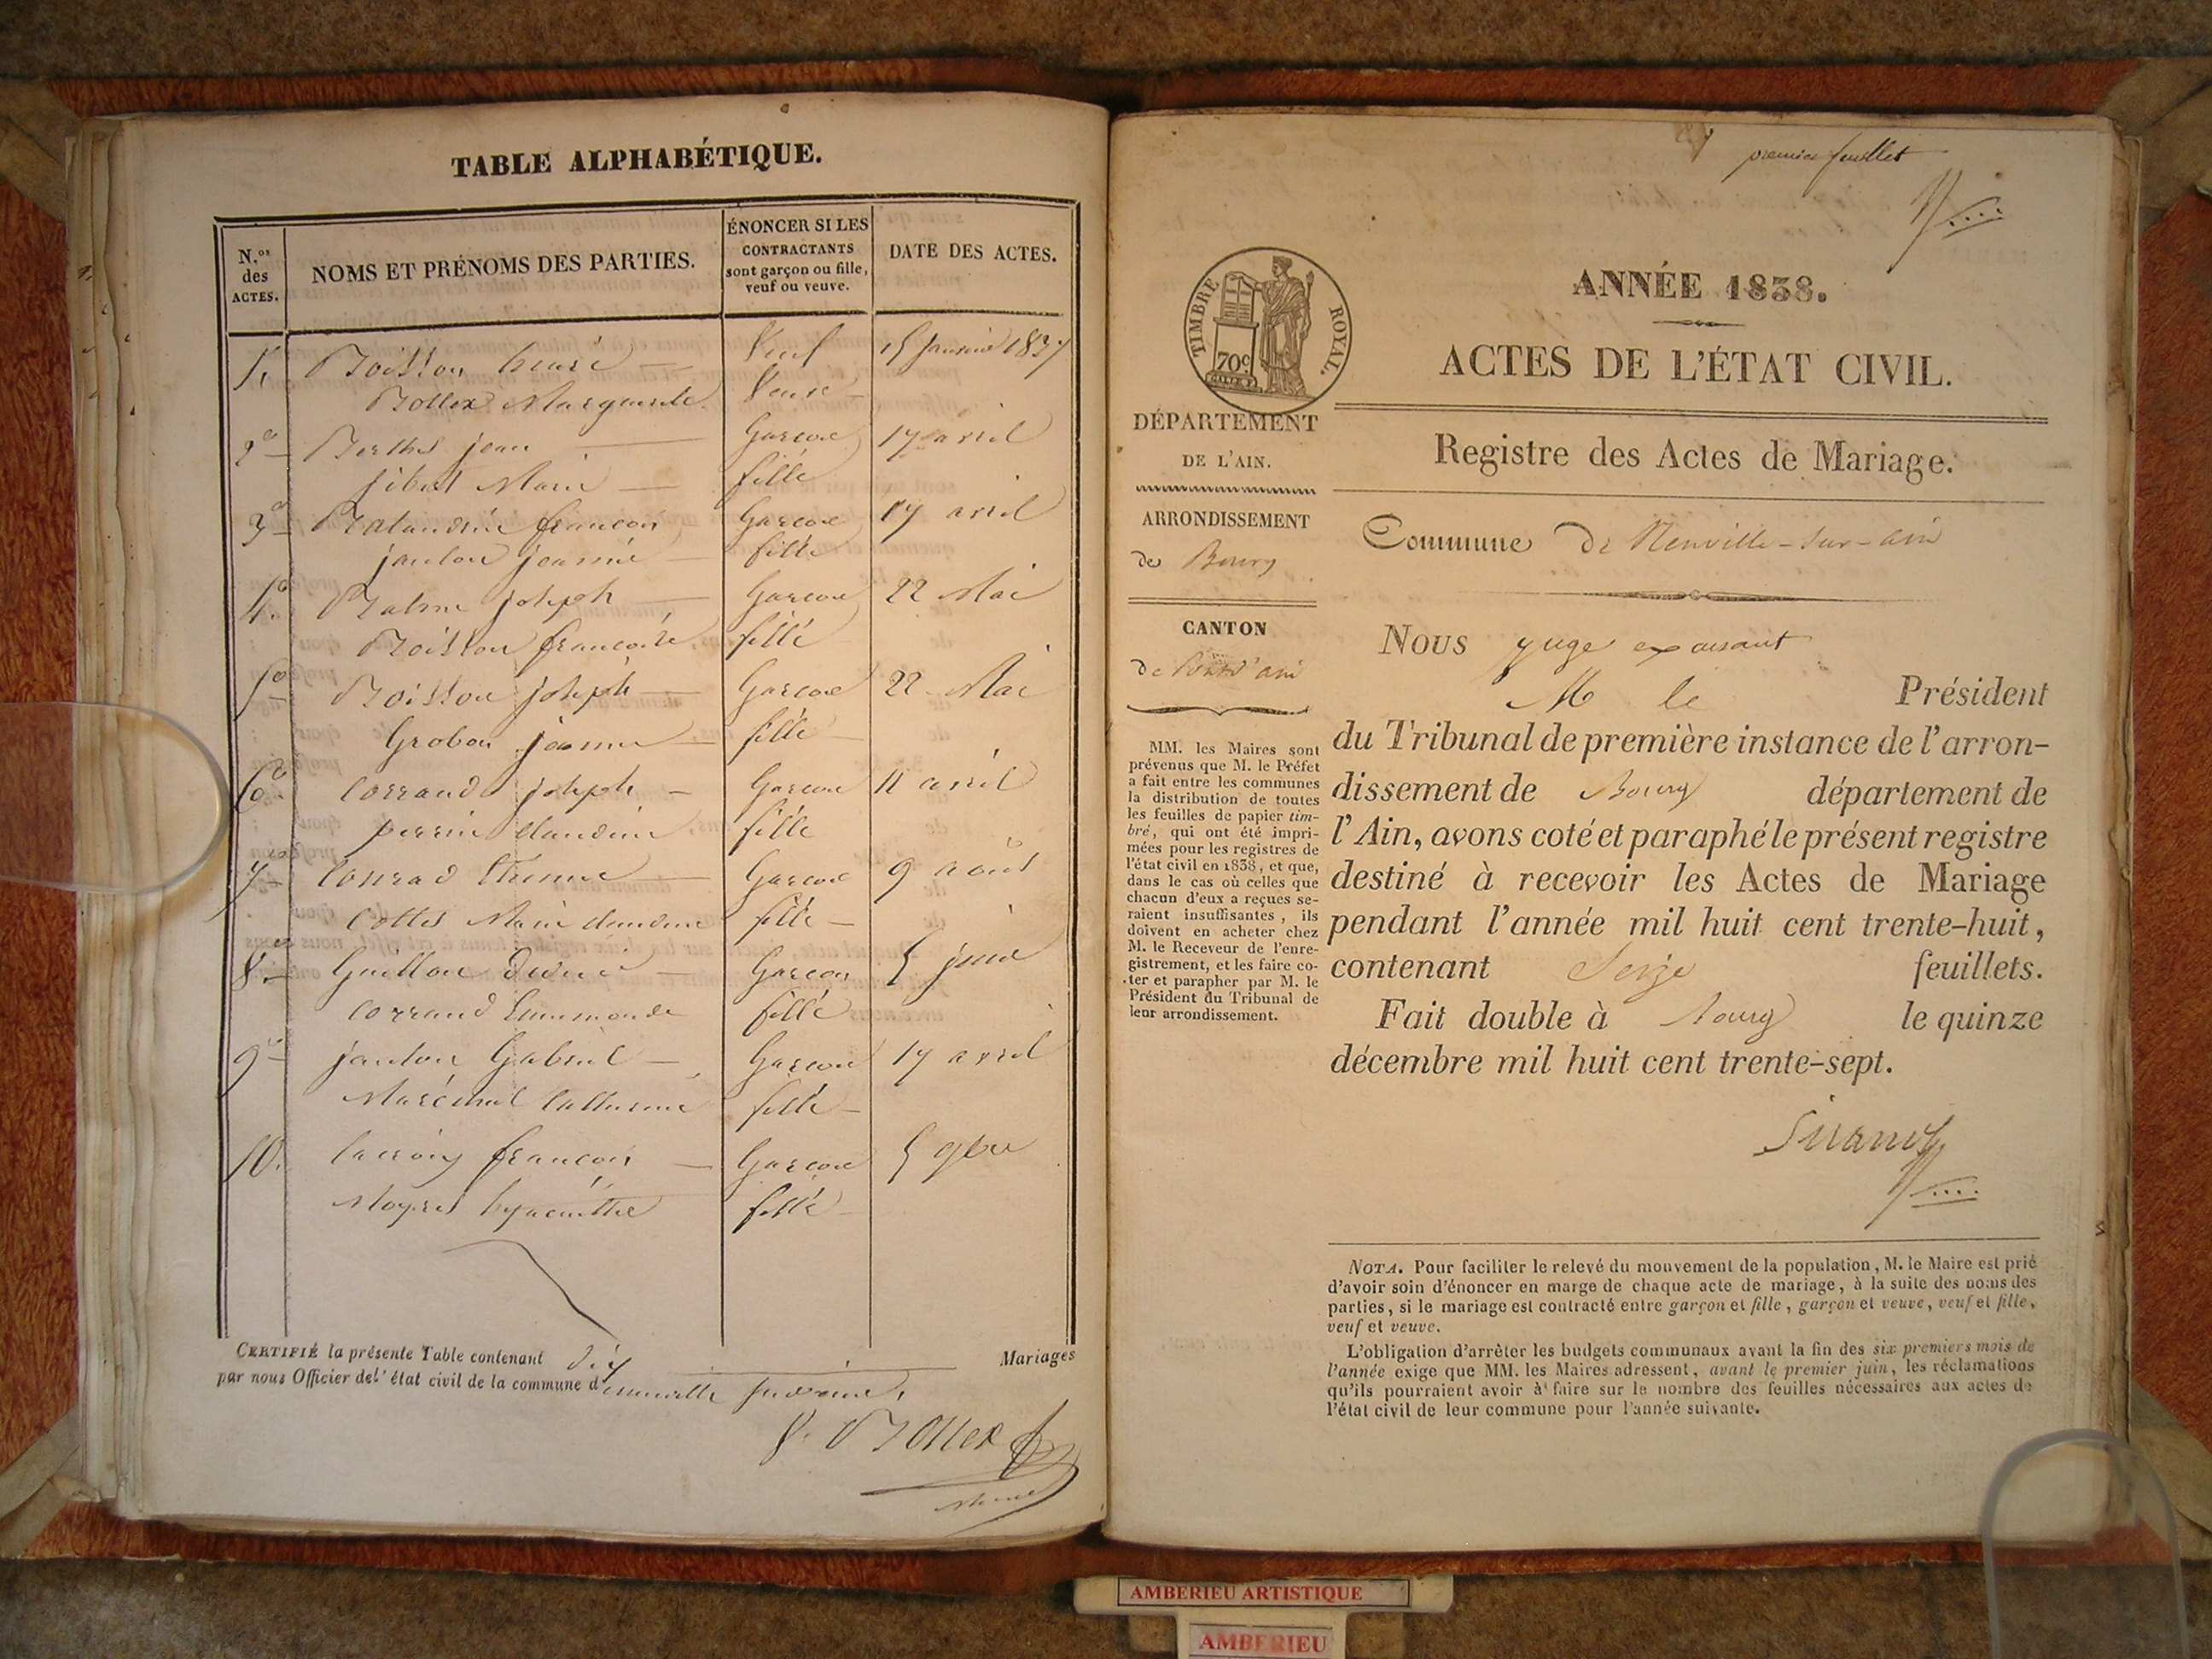 TABLE ALPHABÉTIQUE.
N.os des ACTES.
NOMS ET PRÉNOMS DES PARTIES.
ÉNONCER SI LES
CONTRACTANTS
sont garçon ou fille,
veuf ou veuve.
DATE DES ACTES.
1. Boisson henri Veuf 15 janvier 1837
Bollex Marguerite Veuve
2° Berthet jean Garcon 17 avril
fille
3° françois Garcon 17 avril
janton jeanne fille
4° Balme joseph Garcon 22 Mai
Boisson françoise fille
5° Boisson joseph Garcon 22 Mai
Grobon jeanne fille
6° Corrand joseph Garcon 11 avril
perrin Claudine fille
7° Conrad Etienne Garcon 9 août
Marie Claudine fille
8° Guillon Garcon 5 juin
Corrand fille
9° janton Gabriel Garcon 17 avril
Maréchal Catherine fille
10. Lacroix françois Garcon 5 9bre
hyacinthe fille
CERTIFIÉ la présente Table contenant dix Mariages
par nous Officier de l'état civil de la commune d
Bollex
premier feuillet
TIMBRE ROYAL.
70c
ANNÉE 1838.
ACTES DE L'ÉTAT CIVIL.
Registre des Actes de Mariage.
Commune De Neuville-sur-ain
DÉPARTEMENT
DE L'AIN.
ARRONDISSEMENT
de Bourg
CANTON
De Pont d'ain
MM. les Maires sont
prévenus que M. le Préfet
a fait entre les communes
la distribution de toutes
les feuilles de papier tim-
bré, qui ont été impri-
mées pour les registres de
l'état civil en 1838, et que,
dans le cas où celles que
chacun d'eux a reçues se-
raient insuffisantes, ils
doivent en acheter chez
M. le Receveur de l'enre-
gistrement, et les faire co-
ter et parapher par M. le
Président du Tribunal de
leur arrondissement.
NOUS juge
M le Président
du Tribunal de première instance de l'arron-
dissement de Bourg département de
l'Ain, avons coté et paraphé le présent registre
destiné à recevoir les Actes de Mariage
pendant l'année mil huit cent trente-huit,
contenant Seize feuillets.
Fait double à Bourg le quinze
décembre mil huit cent trente-sept.
NOTA. Pour faciliter le relevé du mouvement de la population, M. le Maire est prié
d'avoir soin d'énoncer en marge de chaque acte de mariage, à la suite des noms des
parties, si le mariage est contracté entre garçon et fille, garçon et veuve, veuf et fille,
veuf et veuve.
L'obligation d'arrêter les budgets communaux avant la fin des six premiers mois de
l'année exige que MM. les Maires adressent, avant le premier juin, les réclamations
qu'ils pourraient avoir à faire sur le nombre des feuilles nécessaires aux actes de
l'état civil de leur commune pour l'année suivante.
AMBERIEU ARTISTIQUE
AMBERIEU